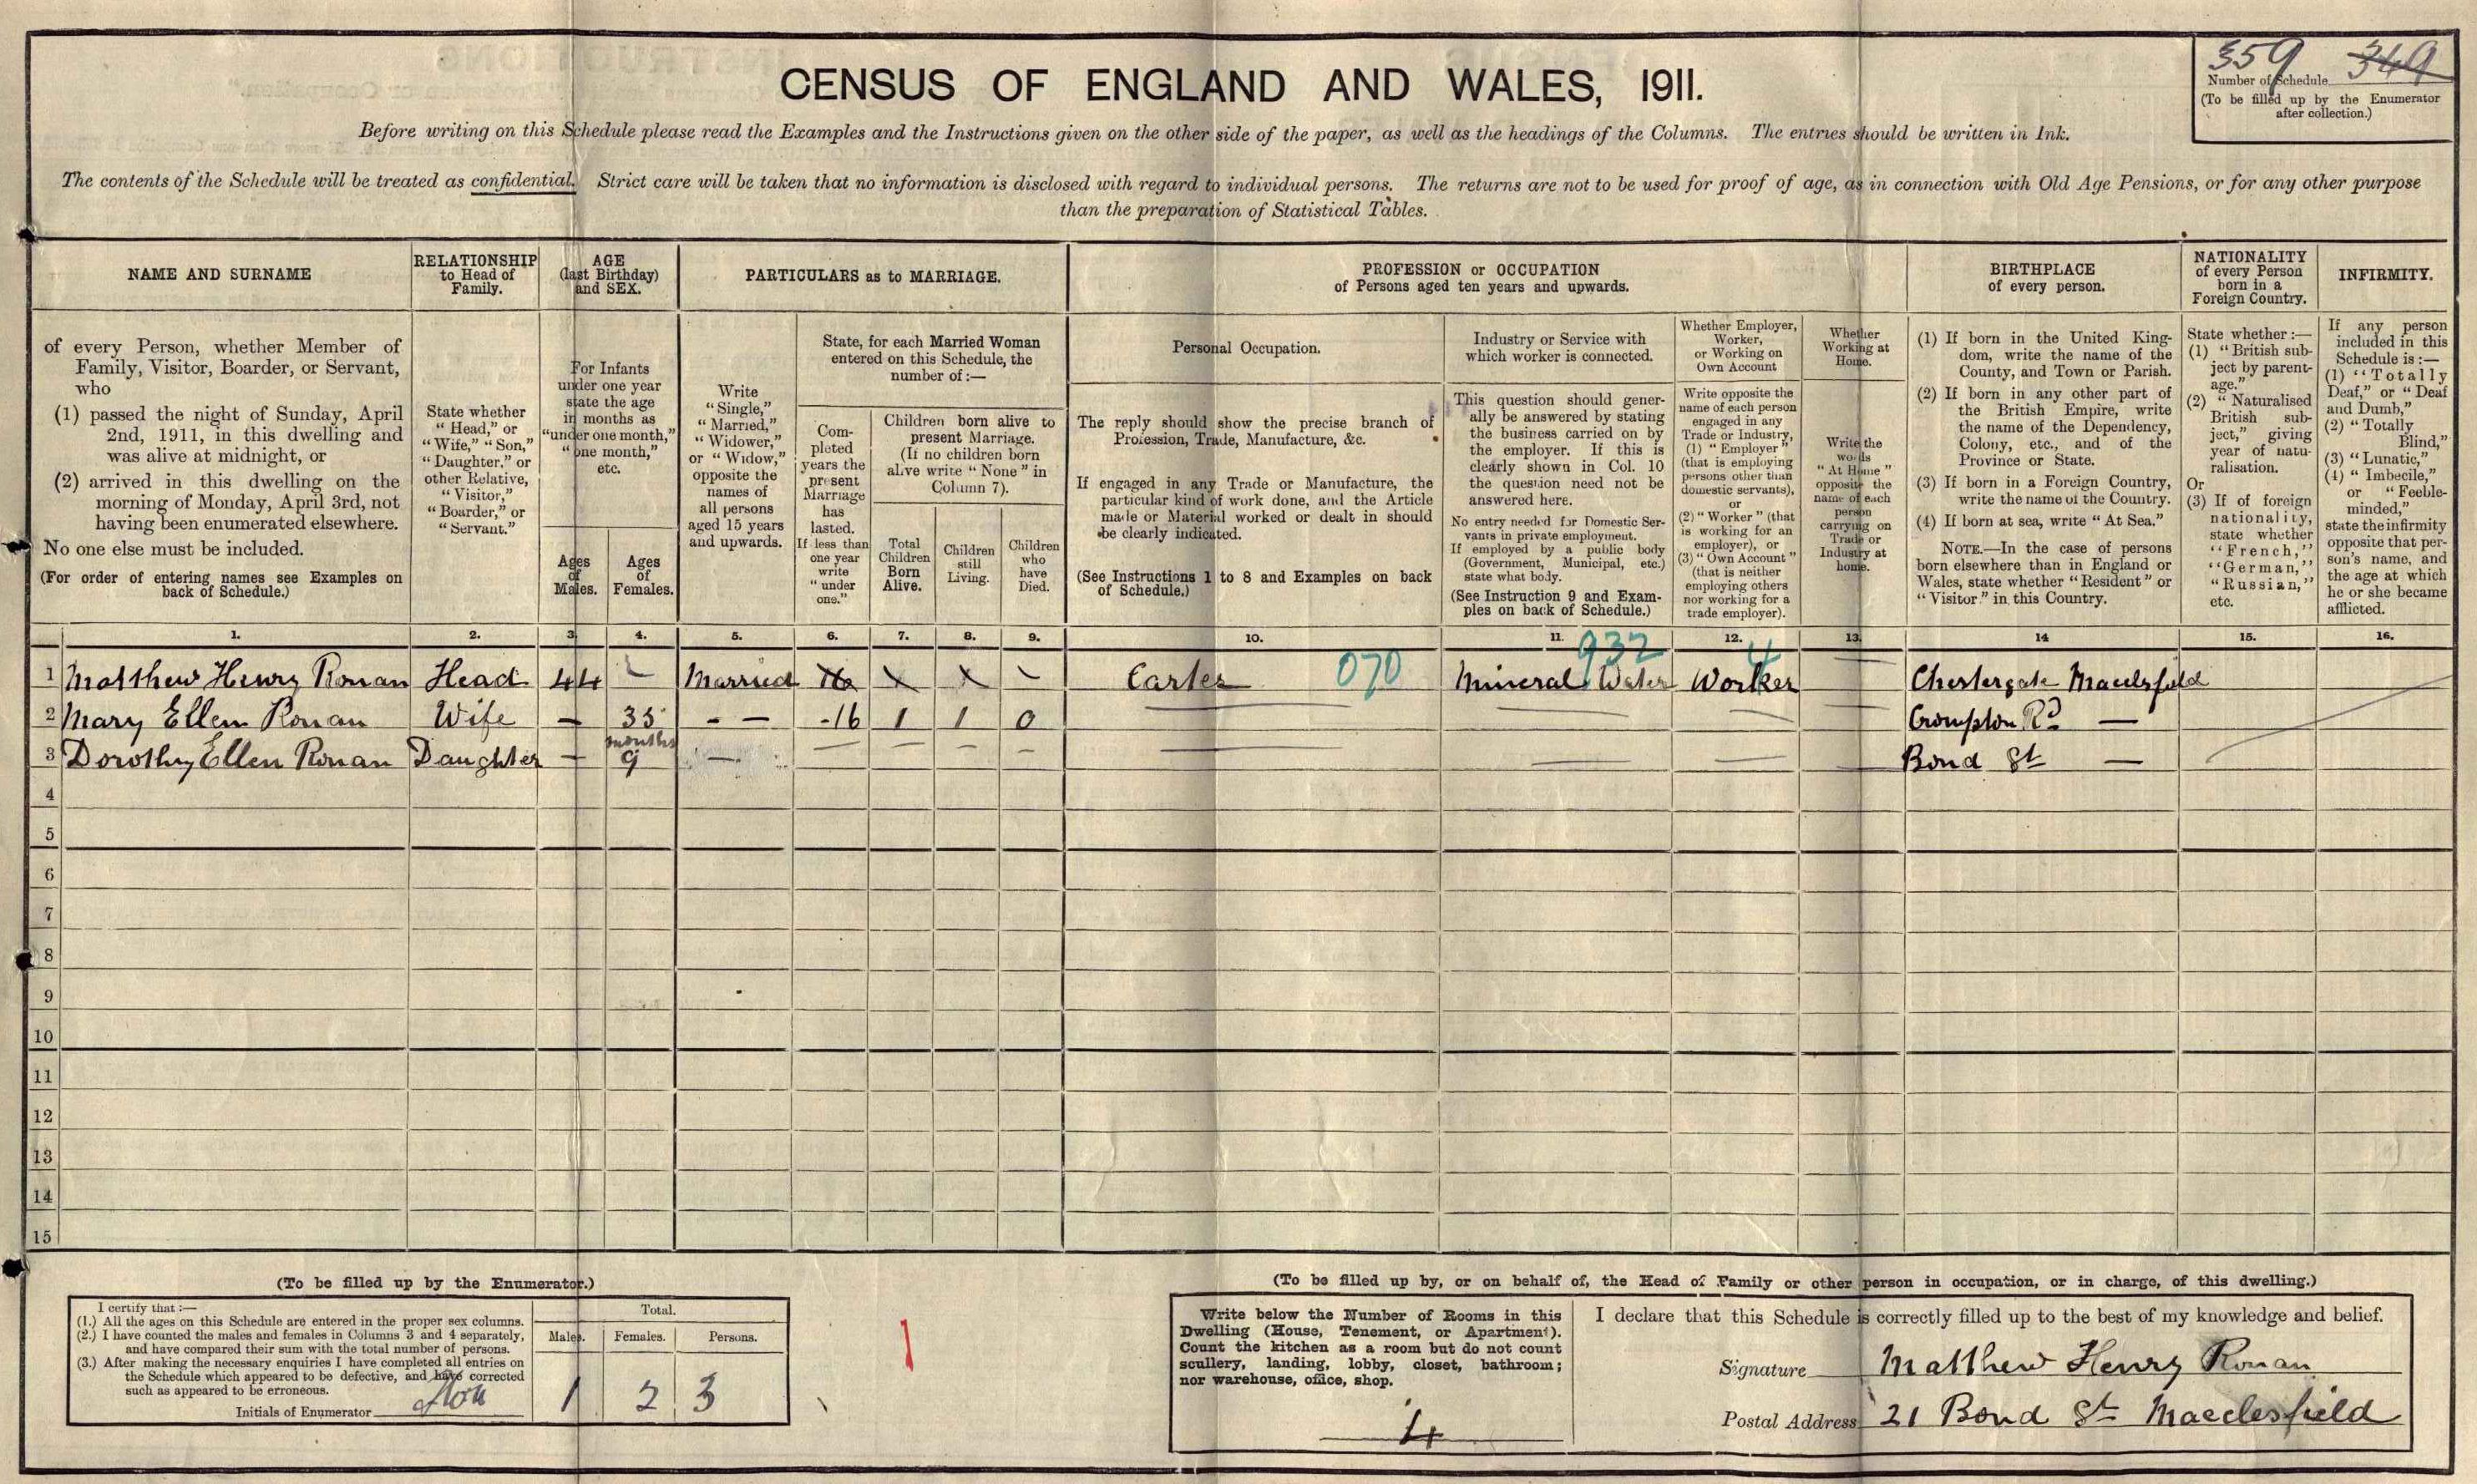 359 349
Number of Schedule
(To be filled up by the Enumerator
after collection.)
CENSUS OF ENGLAND AND WALES, 1911.
Before writing on this Schedule please read the Examples and the Instructions given on the other side of the paper, as well as the headings of the Columns. The entries should be written in Ink.
The contents of the Schedule will be treated as confidential. Strict care will be taken that no information is disclosed with regard to individual persons. The returns are not to be used for proof of age, as in connection with Old Age Pensions, or for any other purpose
than the preparation of Statistical Tables.
NAME AND SURNAME
of every Person, whether Member of
Family, Visitor, Boarder, or Servant,
who
(1) passed the night of Sunday, April
2nd, 1911, in this dwelling and
was alive at midnight, or
(2) arrived in this dwelling on the
morning of Monday, April 3rd, not
having been enumerated elsewhere.
No one else must be included.
(For order of entering names see Examples on
back of Schedule.)
RELATIONSHIP
to Head of
Family.
State whether
"Head," or
"Wife," "Son,"
"Daughter," or
other Relative,
"Visitor,"
"Boarder," or
"Servant."
AGE
(last Birthday)
and SEX.
For Infants
under one year
state the age
in months as
"under one month,"
"one month,"
etc.
Ages
of
Males.
Ages
of
Females.
PARTICULARS as to MARRIAGE.
Write
"Single,"
"Married,"
"Widower,"
or "Widow,"
opposite the
names of
all persons
aged 15 years
and upwards.
State, for each Married Woman
entered on this Schedule, the
number of:—
Com-
pleted
years the
present
Marriage
has
lasted.
If less than
one year
write
"under
one."
Children born alive to
present Marriage.
(If no children born
alive write "None" in
Column 7).
Total
Children
Born
Alive.
Children
still
Living.
Children
who
have
Died.
PROFESSION or OCCUPATION
of Persons aged ten years and upwards.
Personal Occupation.
The reply should show the precise branch of
Profession, Trade, Manufacture, &c.
If engaged in any Trade or Manufacture, the
particular kind of work done, and the Article
made or Material worked or dealt in should
be clearly indicated.
(See Instructions 1 to 8 and Examples on back
of Schedule.)
Industry or Service with
which worker is connected.
This question should gener-
ally be answered by stating
the business carried on by
the employer. If this is
clearly shown in Col. 10
the question need not be
answered here.
No entry needed for Domestic Ser-
vants in private employment.
If employed by a public body
(Government, Municipal, etc.)
state what body.
(See Instruction 9 and Exam-
ples on back of Schedule.)
Whether Employer,
Worker,
or Working on
Own Account
Write opposite the
name of each person
engaged in any
Trade or Industry,
(1) "Employer"
(that is employing
persons other than
domestic servants),
or
(2) "Worker" (that
is working for an
employer), or
(3) "Own Account"
(that is neither
employing others
nor working for a
trade employer).
Whether
Working at
Home.
Write the
words
"At Home"
opposite the
name of each
person
carrying on
Trade or
Industry at
home.
BIRTHPLACE
of every person.
(1) If born in the United King-
dom, write the name of the
County, and Town or Parish.
(2) If born in any other part of
the British Empire, write
the name of the Dependency,
Colony, etc., and of the
Province or State.
(3) If born in a Foreign Country,
write the name of the Country.
(4) If born at sea, write "At Sea."
NOTE.—In the case of persons
born elsewhere than in England or
Wales, state whether "Resident" or
"Visitor" in this Country.
NATIONALITY
of every Person
born in a
Foreign Country.
State whether:—
(1) "British sub-
ject by parent-
age."
(2) "Naturalised
British sub-
ject," giving
year of natu-
ralisation.
Or
(3) If of foreign
nationality,
state whether
"French,"
"German,"
"Russian,"
etc.
INFIRMITY.
If any person
included in this
Schedule is:—
(1) "Totally
Deaf," or "Deaf
and Dumb,"
(2) "Totally
Blind,"
(3) "Lunatic,"
(4) "Imbecile,"
or "Feeble-
minded,"
state the infirmity
opposite that per-
son's name, and
the age at which
he or she became
afflicted.
1. 2. 3. 4. 5. 6. 7. 8. 9. 10. 11. 12. 13. 14 15. 16.
070 932 4
1 Matthew Henry Ronan Head 44 – Married 16 Carter Mineral Water Worker Chestergate Macclesfield
2 Mary Ellen Ronan Wife – 35 – – -16 1 1 0 Crompton Rd —
months
3 Dorothy Ellen Ronan Daughter – 9 — Bond St —
4
5
6
7
8
9
10
11
12
13
14
15
(To be filled up by the Enumerator.)
I certify that:—
(1.) All the ages on this Schedule are entered in the proper sex columns.
(2.) I have counted the males and females in Columns 3 and 4 separately,
and have compared their sum with the total number of persons.
(3.) After making the necessary enquiries I have completed all entries on
the Schedule which appeared to be defective, and have corrected
such as appeared to be erroneous.
Initials of Enumerator
Total.
Males. Females. Persons.
1 2 3
1
(To be filled up by, or on behalf of, the Head of Family or other person in occupation, or in charge, of this dwelling.)
Write below the Number of Rooms in this
Dwelling (House, Tenement, or Apartment).
Count the kitchen as a room but do not count
scullery, landing, lobby, closet, bathroom;
nor warehouse, office, shop.
4
I declare that this Schedule is correctly filled up to the best of my knowledge and belief.
Signature Matthew Henry Ronan
Postal Address 21 Bond St Macclesfield